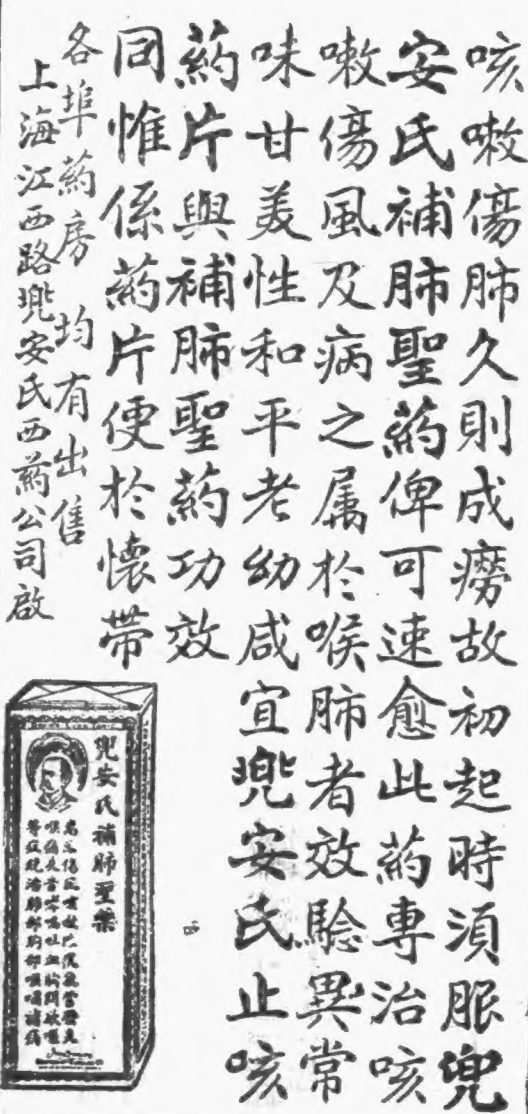 咳嗽傷肺久則成癆故初起時須服兜
安氏補肺聖葯俾可速愈此葯專治咳
嗽傷風及病之属於喉肺者效驗異常
味甘美性和平老幼咸宜兜安氏止咳
葯片與補肺聖葯功效
同惟係葯片便於懷帶
各埠葯房均有出售
上海江西路兜安氏西葯公司啟
兜安氏補肺聖藥